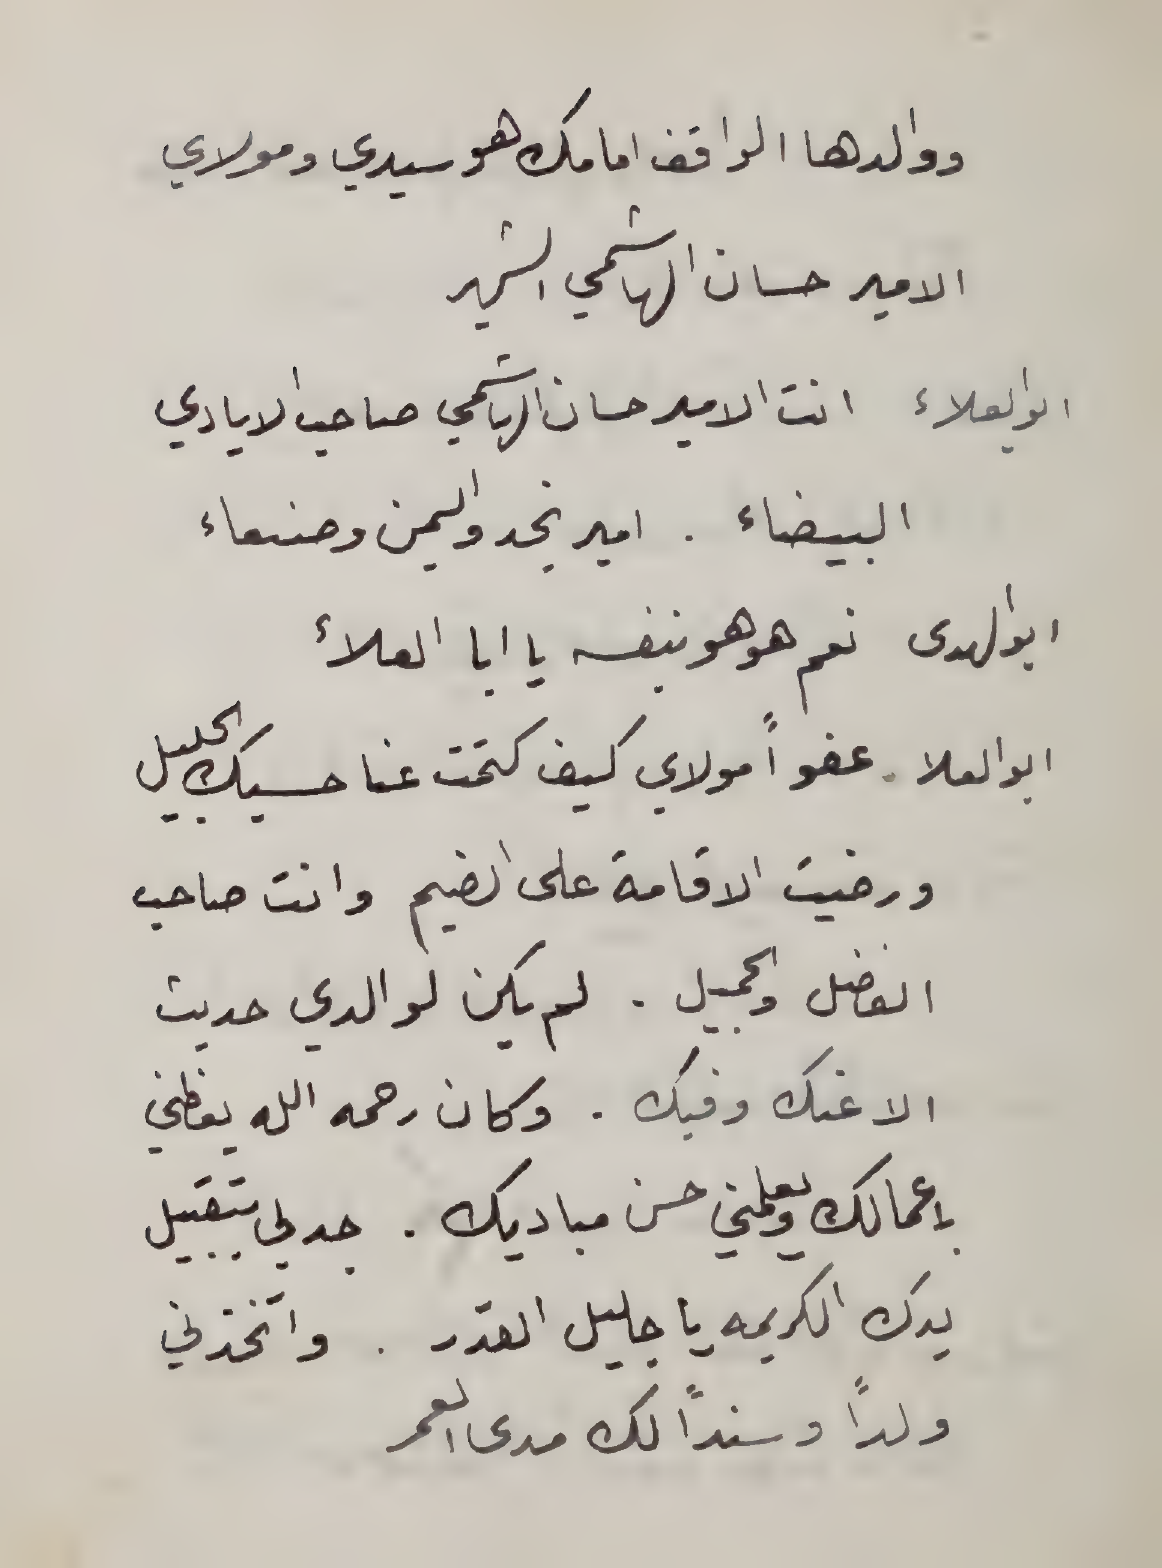 ووالدها الواقف امامك هو سيدي ومولاي
الامير حسان الهاشمي الشهير
ابو العلاء انت الامير حسان الهاشمي صاحب الايادي
البيضاء . امير نجد واليمن وصنعاء
ابو الهدى نعم هو هو بنفسه يا ابا العلاء
ابو العلا . عفواً مولاي كيف كتمت عنا حسبك الجليل
ورضيت الاقامة على الضيم وانت صاحب
الفضل والجميل . لم يكن لوالدي حديث
الا عنك وفيك . وكان رحمه الله يعظني
باعمالك ويعلمني حسن مباديك . جد لي بتقبيل
يدك الكريمه يا جليل القدر . واتخذني
ولداً وسنداً لك مدى العمر